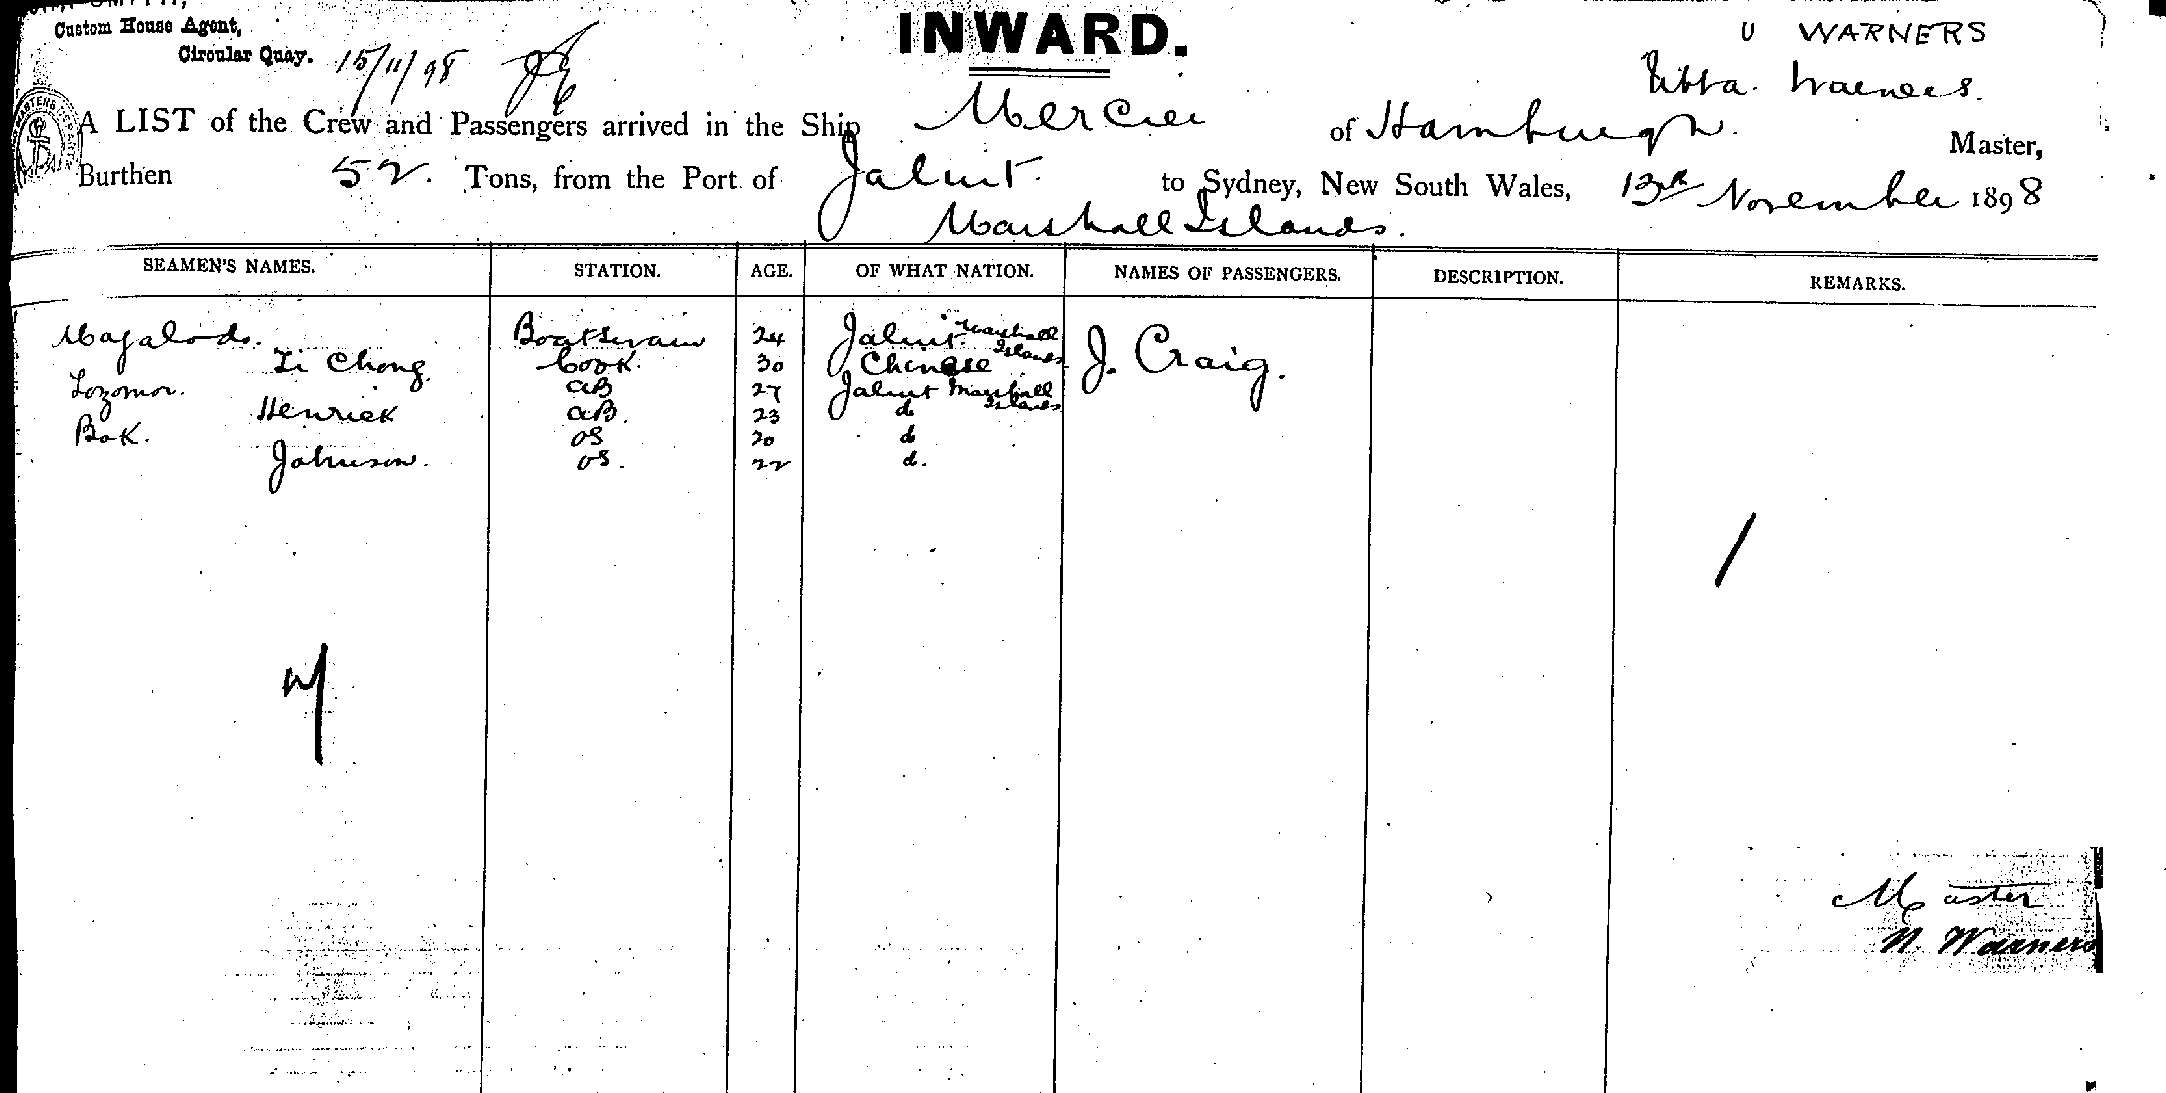 Custom House Agent,
Circular Quay. 15/11/98
INWARD.
U WARNERS
Ubba. Warners.
A LIST of the Crew and Passengers arrived in the Ship Mercur of Hamburgh Master,
Burthen 52. Tons, from the Port of Jaluit to Sydney, New South Wales, 13th November 1898
Marshall Islands.
SEAMEN'S NAMES. STATION. AGE. OF WHAT NATION. NAMES OF PASSENGERS. DESCRIPTION. REMARKS.
Boatswain 24 Jaluit Marshall Islands J. Craig.
Li Chong. Cook. 30 Chinese
Lozomor. AB 27 Jaluit Marshall Islands
Henrick AB. 23 d
Bok. OS 20 d
Johnson. OS. 22 d.
Master
U. Warners